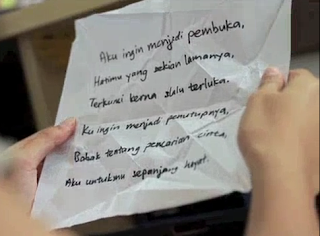 Aku ingin menjadi pembuka,
Hatimu yang sekian lamanya,
Terkunci karna slalu terluka.
Ku ingin menjadi penutupnya,
Babak tentang pencarian cinta,
Aku untukmu sepanjang hayat.